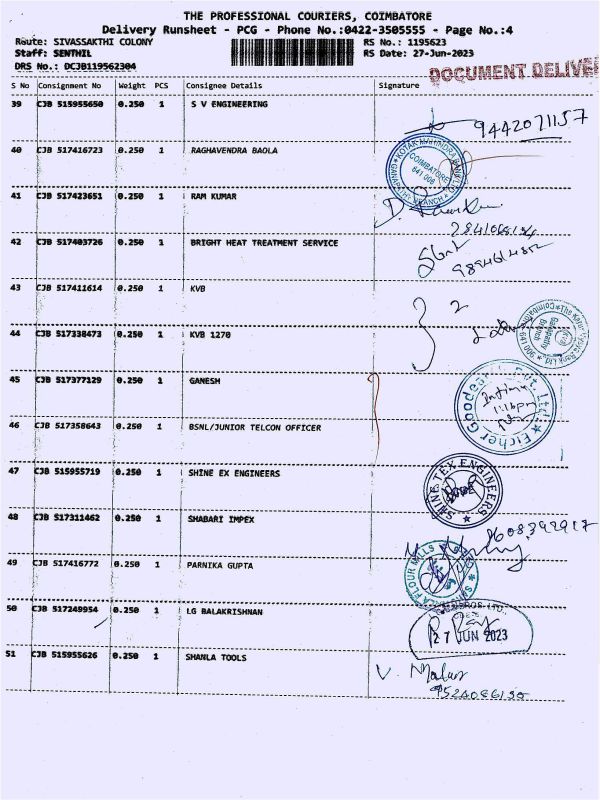 THE PROFESSIONAL COURIERS, COIMBATORE
Delivery Runsheet - PCG - Phone No.:0422-3505555 - Page No.:4
Route: SIVASSAKTHI COLONY RS No.: 1195623
Staff: SENTHIL RS Date: 27-Jun-2023
DRS No.: DCJB119562304 DOCUMENT DELIVE
S No Consignment No Weight PCS Consignee Details Signature
39 CJB 515955650 0.250 1 S V ENGINEERING
9442071157
40 CJB 517416723 0.250 1 RAGHAVENDRA BAOLA
KOTAK MAHINDRA BANK LTD
COIMBATORE
641 006
GANAPATHY BRANCH
41 CJB 517423651 0.250 1 RAM KUMAR
42 CJB 517403726 0.250 1 BRIGHT HEAT TREATMENT SERVICE
43 CJB 517411614 0.250 1 KVB
2
Ganapathy
Branch
44 CJB 517338473 0.250 1 KVB 1270
45 CJB 517377129 0.250 1 GANESH
46 CJB 517358643 0.250 1 BSNL/JUNIOR TELCON OFFICER
47 CJB 515955719 0.250 1 SHINE EX ENGINEERS
SHINE TEX ENGINEERS
48 CJB 517311462 0.250 1 SHABARI IMPEX
9608392917
49 CJB 517416772 0.250 1 PARNIKA GUPTA
FLOUR MILLS
50 CJB 517249954 0.250 1 LG BALAKRISHNAN
BROS LTD
27 JUN 2023
51 CJB 515955626 0.250 1 SHANLA TOOLS